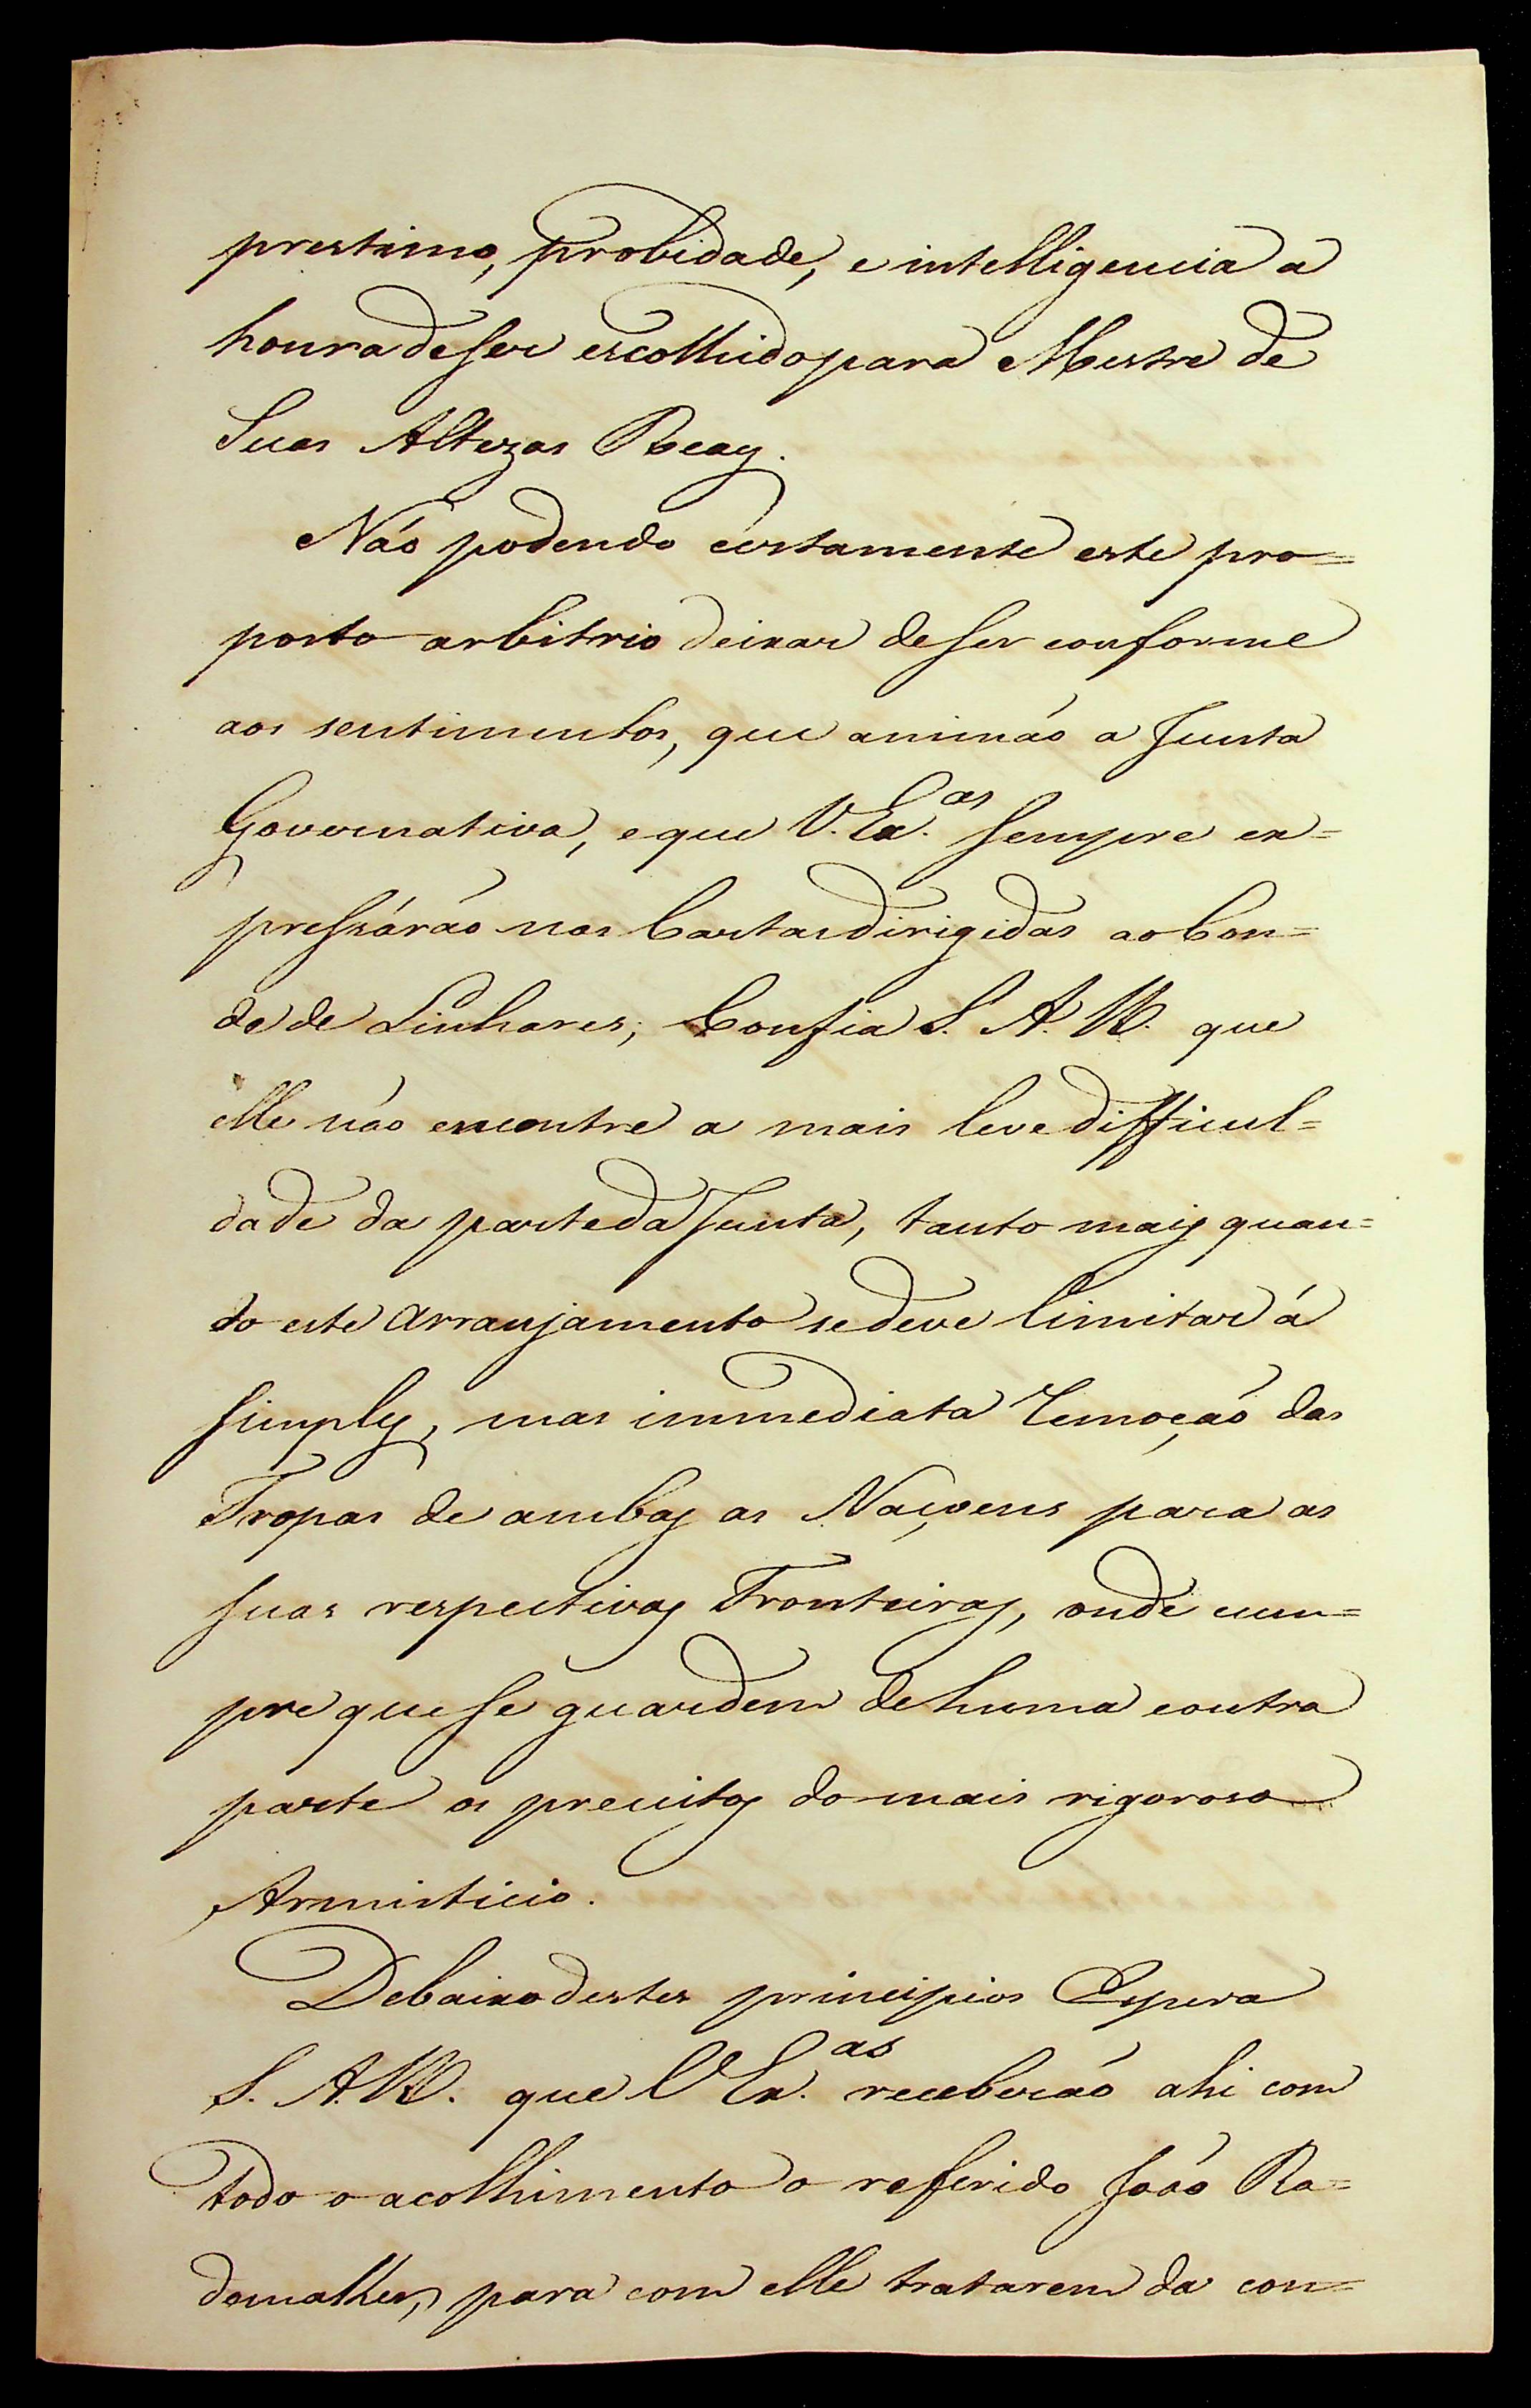 prestimo, probidade, e intelligencia a
honra de ser escolhido para Mestre de
Suas Altezas Reaes.
Não podendo certamente este pro=
posto arbitrio deixar de ser conforme
aos sentimentos, que animão a Junta
Governativa, e que V. Ex.as sempre ex=
pressárão nas Cartas dirigidas ao Con=
de de Linhares; Confia S. A. R. que
elle não encontre a mais leve difficul=
dade da parte da Junta, tanto mais quan=
do este arranjamento se deve limitar á
simples, mas immediata remoção das
Tropas de ambas as Naçoens para as
suas respectivas Fronteiras, onde cum=
pre que se guardem de huma e outra
parte os preceitos do mais rigoroso
Armisticio.
Debaixo destes principios Espera
S. A. R. que V Ex.as receberão ahi com
todo o acolhimento o referido João Ra=
demaker, para com elle tratarem da con=